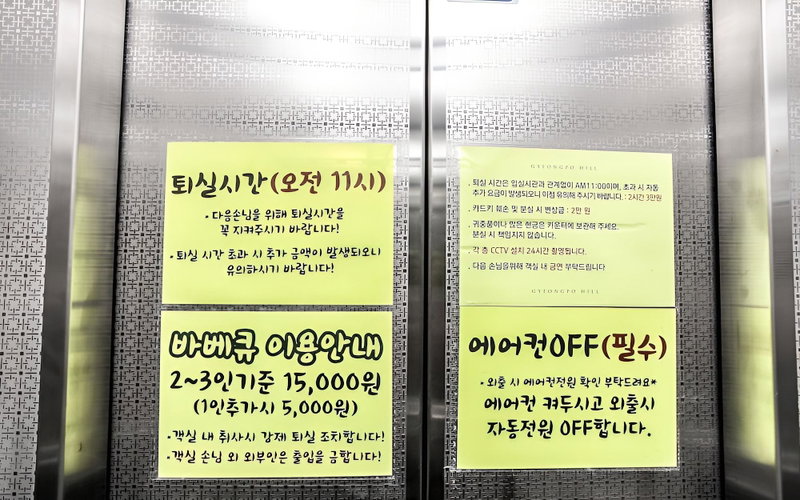 퇴실시간(오전 11시)
· 다음손님을 위해 퇴실시간을
꼭 지켜주시기 바랍니다!
· 퇴실 시간 초과 시 추가 금액이 발생되오니
유의하시기 바랍니다!
GYEONGPO HILL
· 퇴실 시간은 입실시관과 관계없이 AM11:00이며, 초과 시 자동
추가 요금이 발생되오니 이점 유의해 주시기 바랍니다. : 2시간 3만원
· 카드키 훼손 및 분실 시 변상금 : 2만 원
· 귀중품이나 많은 현금은 카운터에 보관해 주세요.
분실 시 책임지지 않습니다.
· 각 층 CCTV 설치 24시간 촬영됩니다.
· 다음 손님을위해 객실 내 금연 부탁드립니다
GYEONGPO HILL
바베큐 이용안내
2~3인기준 15,000원
(1인추가시 5,000원)
· 객실 내 취사시 강제 퇴실 조치합니다!
· 객실 손님 외 외부인은 출입을 금합니다!
에어컨OFF(필수)
· 외출 시 에어컨전원 확인 부탁드려요*
에어컨 켜두시고 외출시
자동전원 OFF합니다.